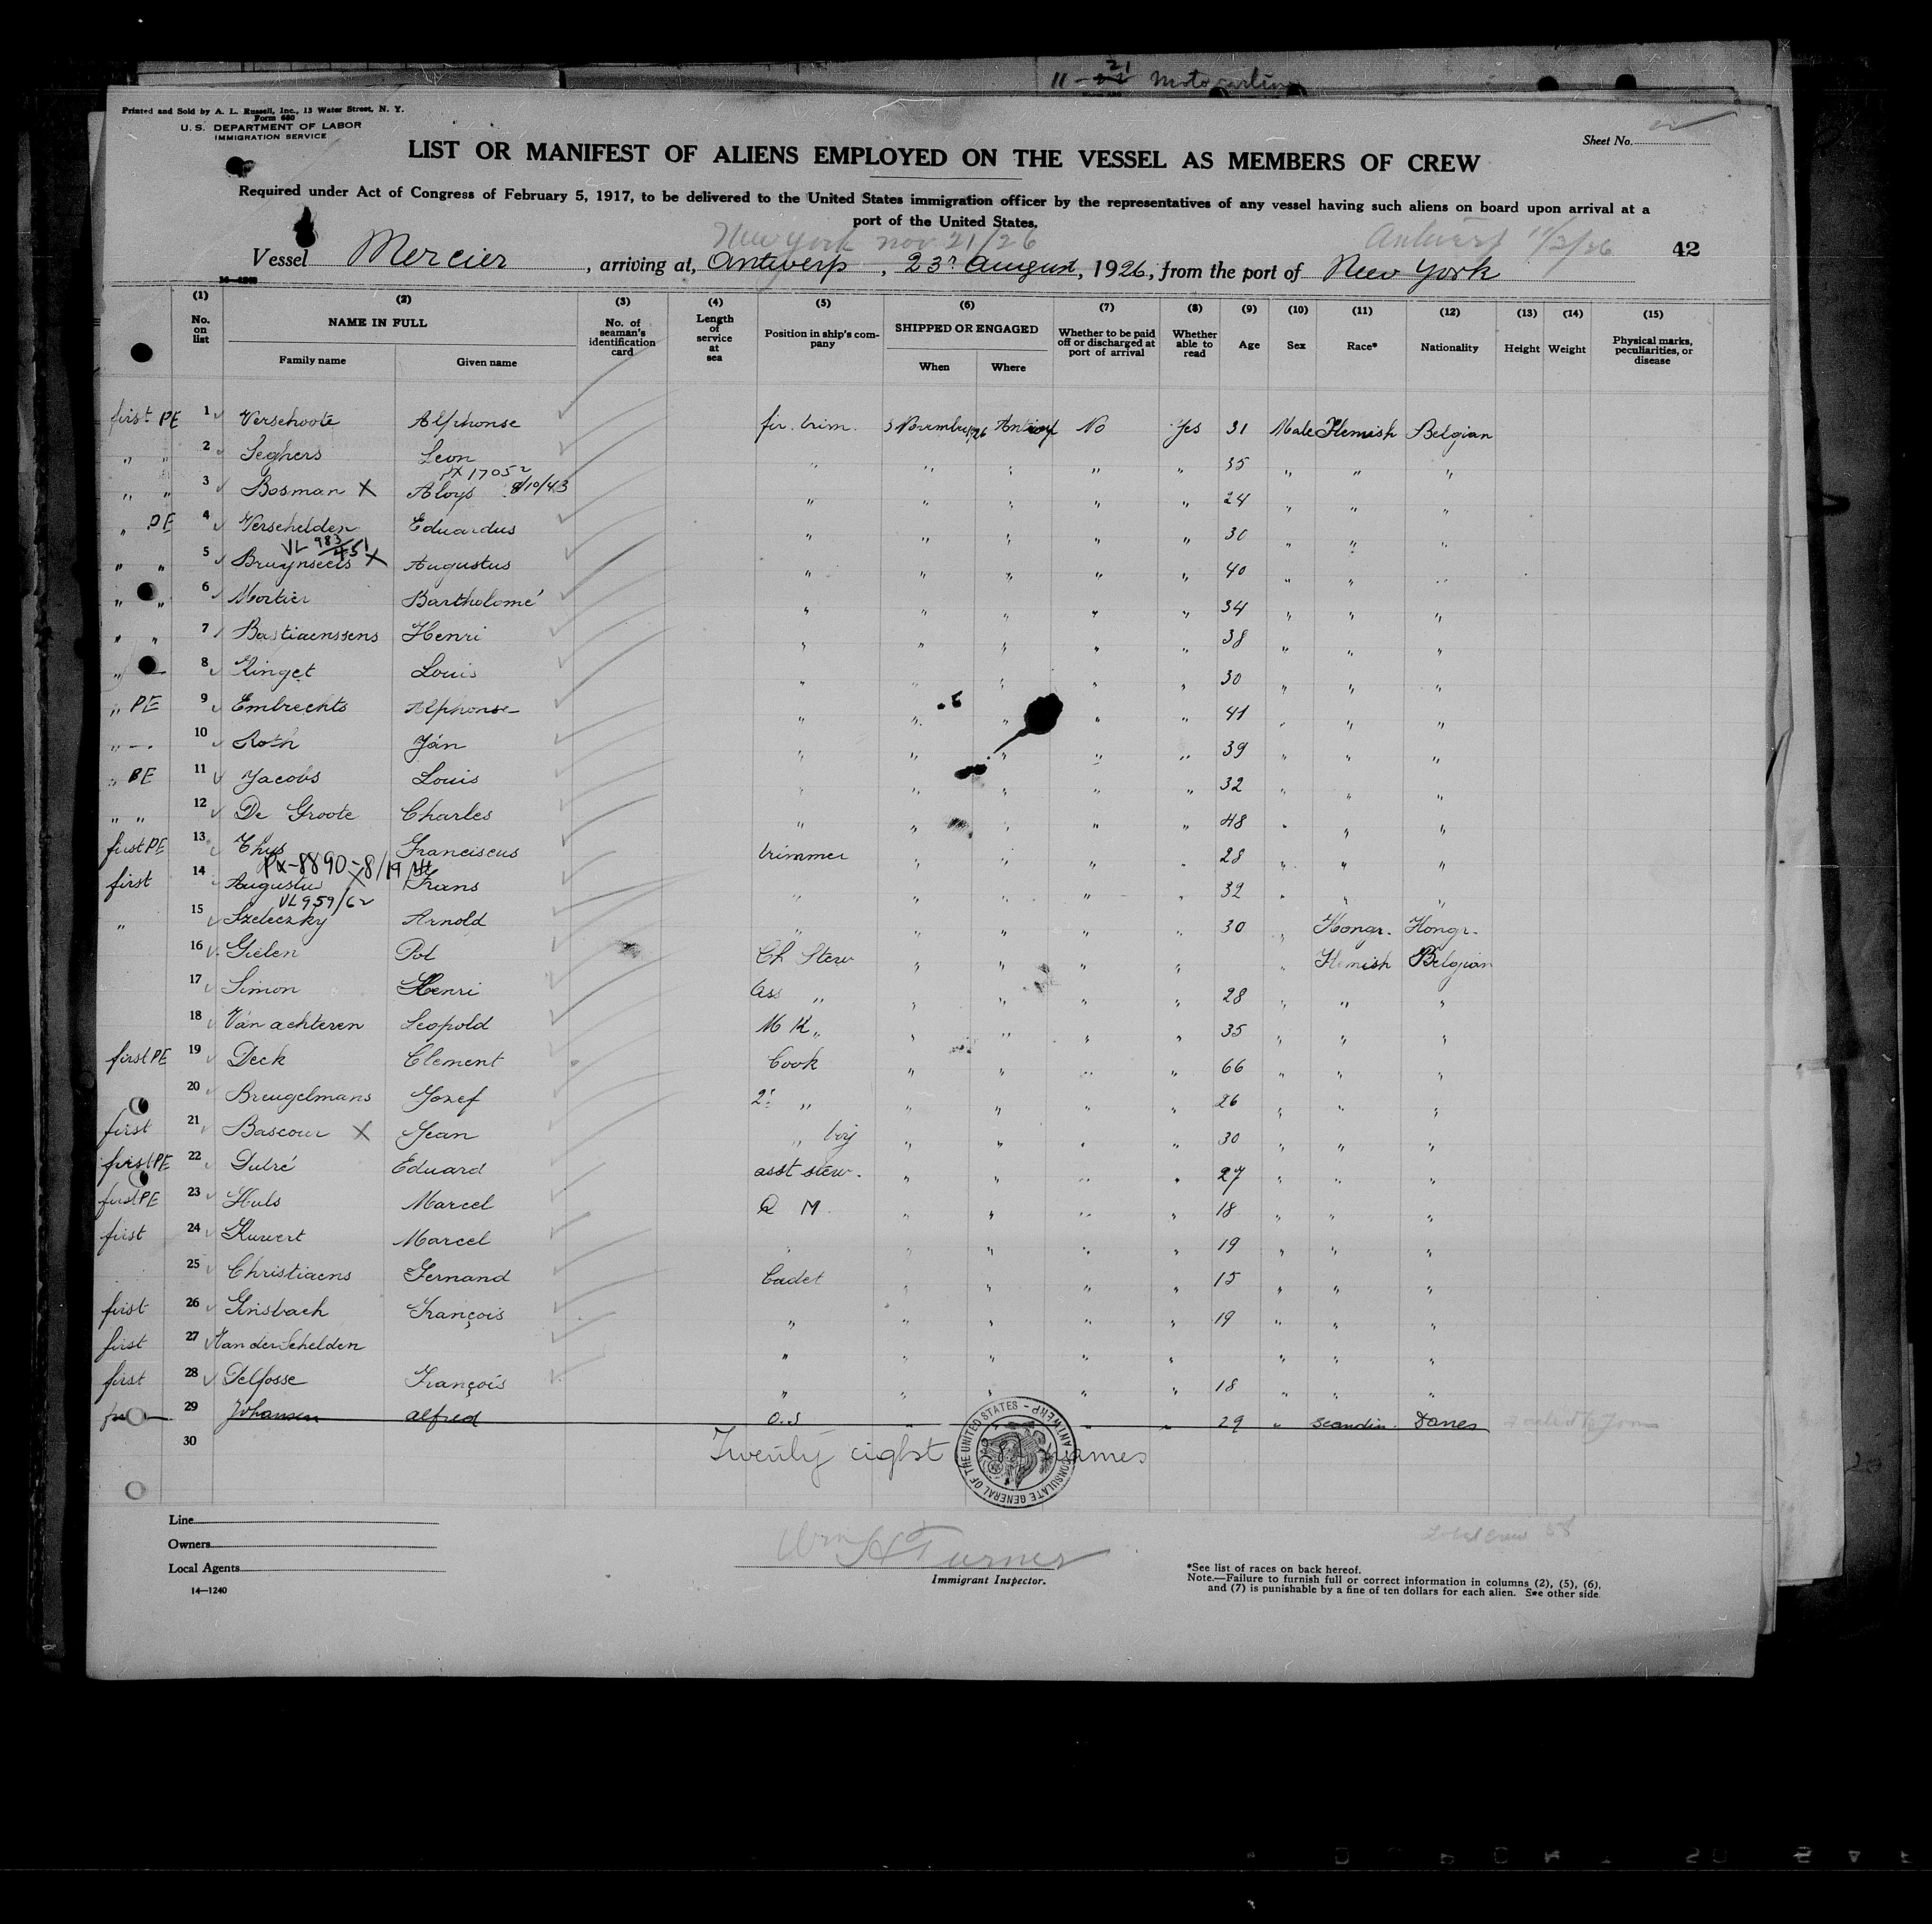 11 - 21
Printed and Sold by A. L. Russell, Inc., 13 Water Street, N. Y.
Form 680
U. S. DEPARTMENT OF LABOR
IMMIGRATION SERVICE
Sheet No.
LIST OR MANIFEST OF ALIENS EMPLOYED ON THE VESSEL AS MEMBERS OF CREW
Required under Act of Congress of February 5, 1917, to be delivered to the United States immigration officer by the representatives of any vessel having such aliens on board upon arrival at a
port of the United States.
New York nov 21/26 Antwerp 11/3/26
Vessel Mercier, arriving at, Antwerp, 23r August, 1926, from the port of New York 42
14-1240
(1) (2) (3) (4) (5) (6) (7) (8) (9) (10) (11) (12) (13) (14) (15)
No. on list NAME IN FULL Family name Given name No. of seaman's identification card Length of service at sea Position in ship's company SHIPPED OR ENGAGED When Where Whether to be paid off or discharged at port of arrival Whether able to read Age Sex Race* Nationality Height Weight Physical marks, peculiarities, or disease
first PE 1 Verschoote Alphonse fir. trim. 3 November/26 Antwerp No Yes 31 Male Flemish Belgian
" " 2 Seghers Leon " " " " " 35 " " "
8/10/43
" " 3 Bosman X Aloys " " " " " 24 " " "
" PE 4 Verschelden Eduardus " " " " " 30 " " "
VL 983/451
" " 5 Bruynseels X Augustus " " " " " 40 " " "
" " 6 Mortier Bartholomé " " " " " 34 " " "
" " 7 Bastiaenssens Henri " " " " " 38 " " "
" 8 Ringet Louis " " " " " 30 " " "
" PE 9 Embrechts Alphonse " " " " " 41 " " "
" 10 Roth Ján " " " " " 39 " " "
" BE 11 Jacobs Louis " " " " " 32 " " "
" " 12 De Groote Charles " " " " " 48 " " "
first PE 13 Thys Franciscus trimmer " " " " 28 " " "
Px-8890-8/19
first 14 Augustus X Frans " " " " " 32 " " "
VL 959/62
" 15 Szeleczky Arnold " " " " " 30 " Hongr. Hongr.
16 Gielen Pol Ch Stew " " " " " Flemish Belgian
17 Simon Henri Ass " " " " " 28 " " "
18 Van achteren Leopold M K " " " " " 35 " " "
first PE 19 Deck Clement Cook " " " " 66 " " "
20 Breugelmans Jozef 2e " " " " " 26 " " "
first 21 Bascour X Jean " boy " " " " 30 " " "
first PE 22 Dutré Eduard asst stew. " " " " 27 " " "
first PE 23 Huls Marcel Q M. " " " " 18 " " "
first 24 Kuwert Marcel " " " " " 19 " " "
25 Christiaens Fernand Cadet " " " " 15 " " "
first 26 Ginsbach François " " " " " 19 " " "
first 27 Van der Schelden " " " " " " " "
first 28 Delfosse François " " " " " 18 " " "
29 Johansen alfred O.S " " " " 29 " scandin. Danes
30
Twenty eight names
CONSULATE GENERAL OF THE UNITED STATES - ANTWERP -
Line
Owners
Local Agents
14-1240
Wm H Turner
Immigrant Inspector.
Total crew 58
*See list of races on back hereof.
Note.—Failure to furnish full or correct information in columns (2), (5), (6),
and (7) is punishable by a fine of ten dollars for each alien. See other side